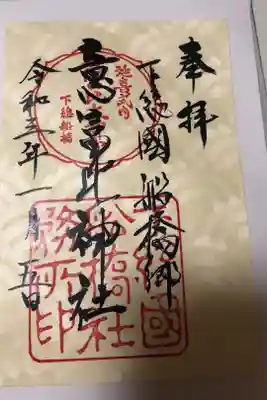 奉拝
下總國 船橋郷
意富比神社
令和三年一月五日
延喜式内
下總船橋
下總國
船橋社
務所印